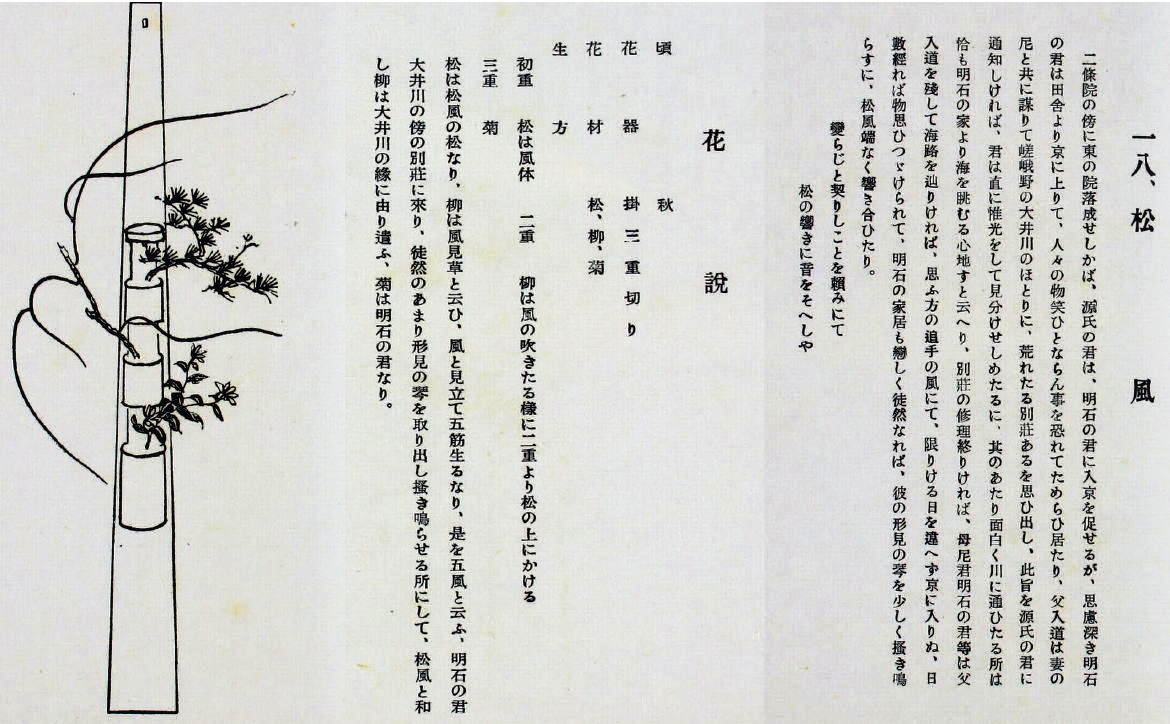 一八、松風
二條院の傍に東の院落成せしかば、源氏の君は、明石の君に入京を促せるが、思慮深き明石
の君は田舎より京に上りて、人々の物笑ひとならん事を恐れてためらひ居たり、父入道は妻の
尼と共に謀りて嵯峨野の大井川のほとりに、荒れたる別莊あるを思ひ出し、此旨を源氏の君に
通知しければ、君は直に惟光をして見分けせしめたるに、其のあたり面白く川に通ひたる所は
恰も明石の家より海を眺むる心地すと云へり、別莊の修理終りければ、母尼君明石の君等は父
入道を殘して海路を辿りければ、思ふ方の追手の風にて、限りける日を違へず京に入りぬ、日
數經れば物思ひつゞけられて、明石の家居も戀しく徒然なれば、彼の形見の琴を少しく搔き鳴
らすに、松風端なく響き合ひたり。
變らじと契りしことを頼みにて
松の響きに音をそへしや
花說
頃 秋
花器 掛三重切り
花材 松、柳、菊
生方
初重 松は風体 二重 柳は風の吹きたる樣に二重より松の上にかける
三重 菊
松は松風の松なり、柳は風見草と云ひ、風と見立て五筋生るなり、是を五風と云ふ、明石の君
大井川の傍の別莊に來り、徒然のあまり形見の琴を取り出し搔き鳴らせる所にして、松風と和
し柳は大井川の緣に由り遣ふ、菊は明石の君なり。